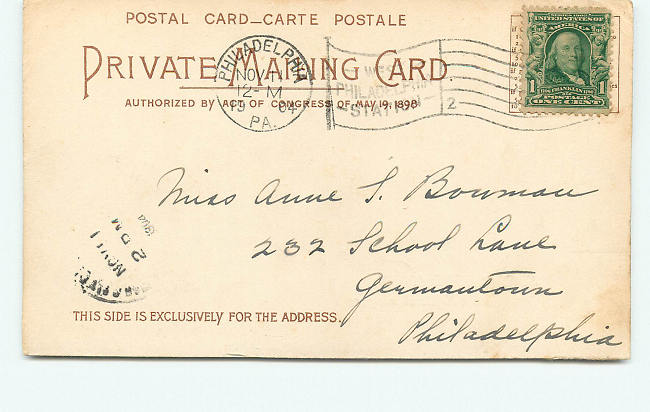 POSTAL CARD—CARTE POSTALE
PRIVATE MAILING CARD.
AUTHORIZED BY ACT OF CONGRESS OF MAY 19, 1898
PHILADELPHIA
NOV 11
12-M
1904
PA.
WEST
PHILADELPHIA
STATION
2
UNITED STATES OF
AMERICA
1 1
POSTAGE
ONE CENT
Miss Anne S. Bowman
232 School Lane
Germantown
Philadelphia
NOV 11
2 PM
1904
THIS SIDE IS EXCLUSIVELY FOR THE ADDRESS.